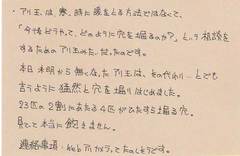 ・アリ玉は、寒い時に暖をとる方法ではなくて、
「今後どうやって、どのように穴を掘るのか?」という相談を
するためのアリ玉みた、だったのです。
本日未明から無くなったアリ玉は、その代わり…とでも
言うように猛然と穴を掘りはじめました。
23匹の2割にあたる4匹がひたすら掘る穴。
見ていて本当に飽きません。
連絡事項:Webアリカメラってたのしそうです。